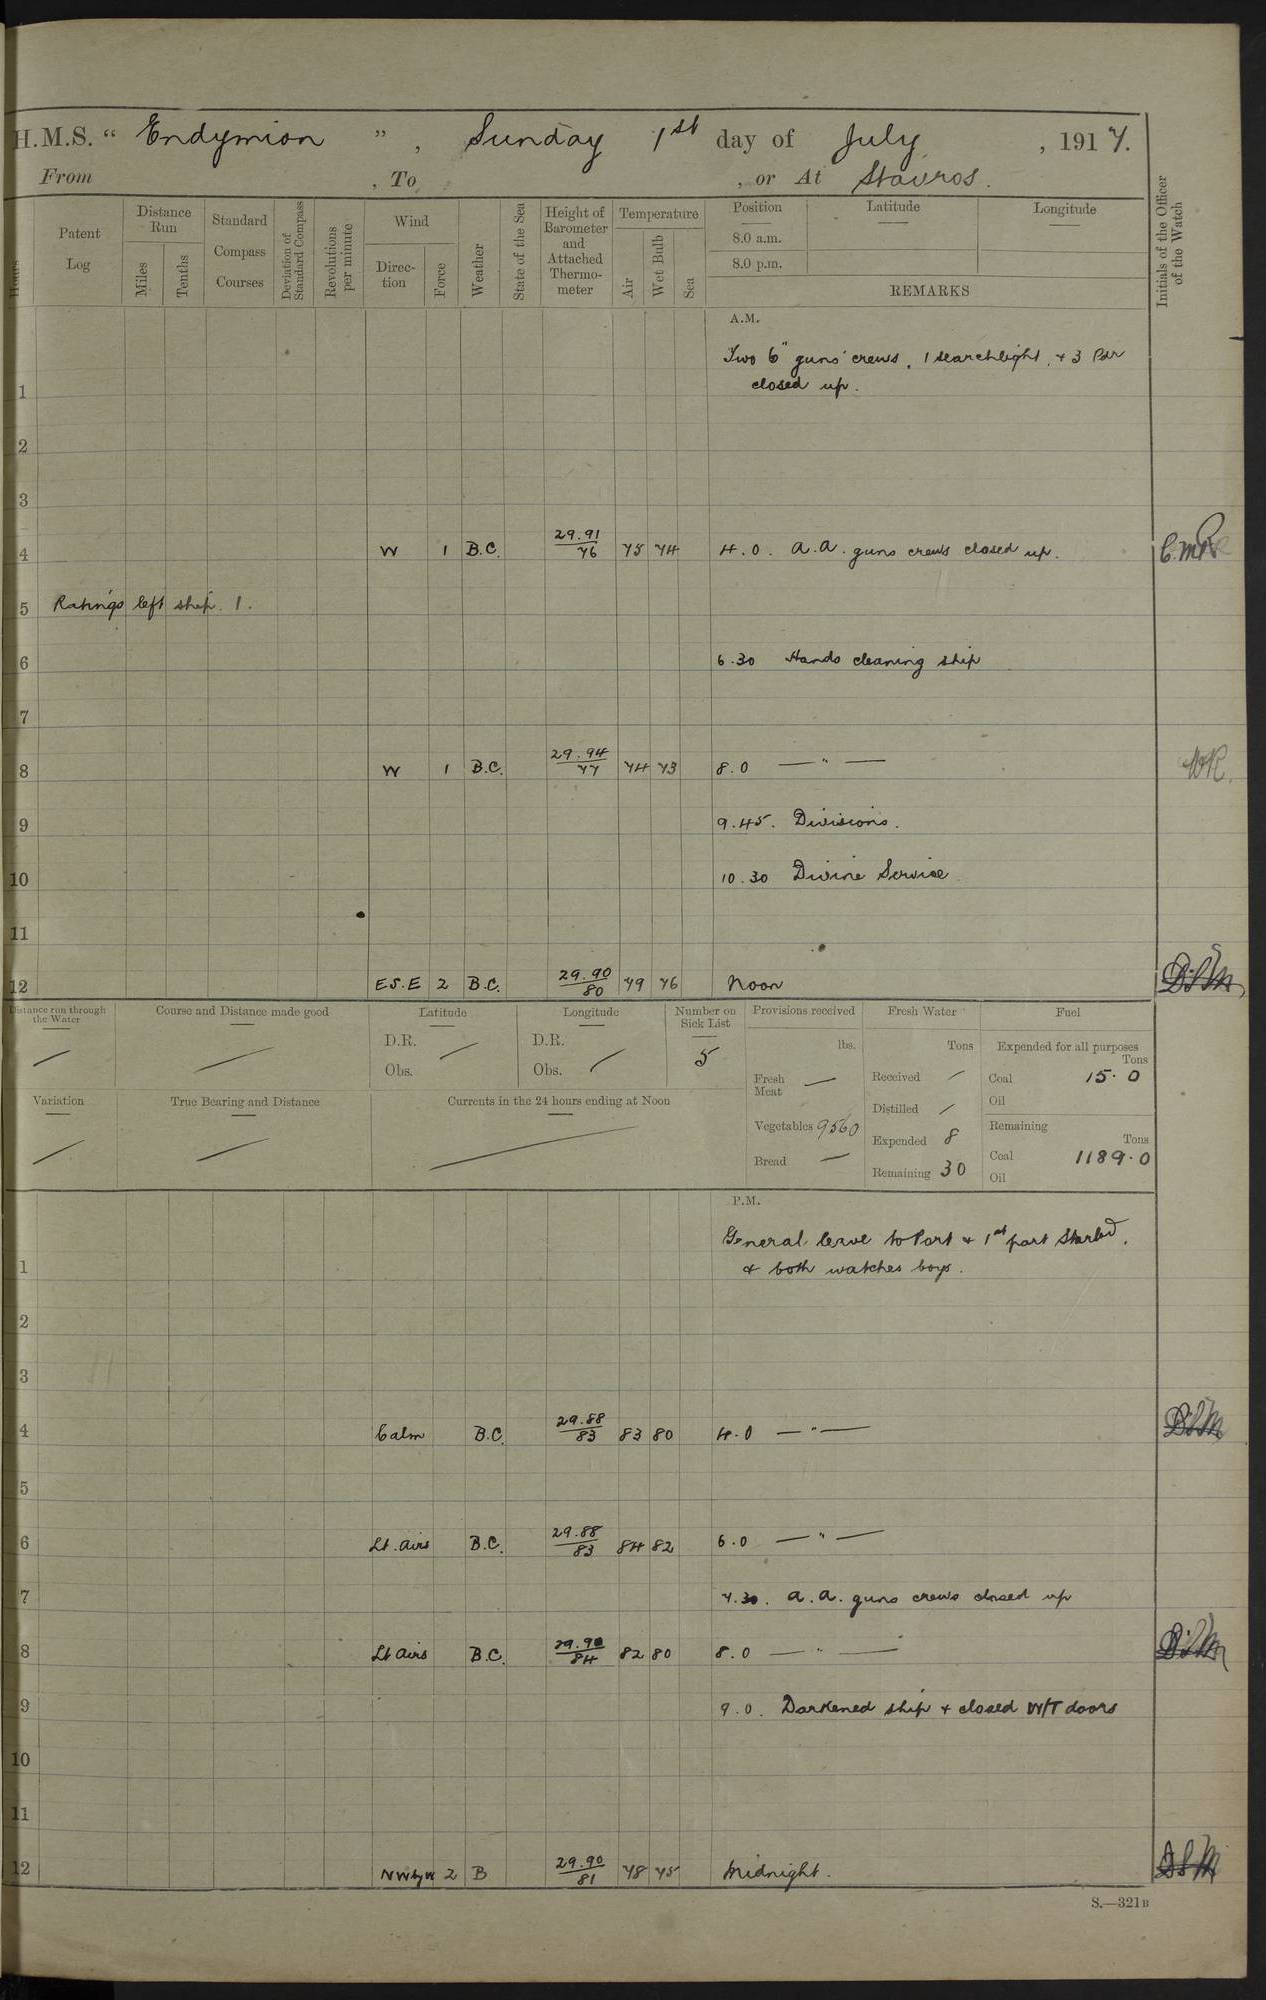 H.M.S. " Endymion ", Sunday 1st day of July, 1917.
From , To , or At Stavros.
Hours
Patent Log
Distance Run
Miles
Tenths
Standard Compass Courses
Deviation of Standard Compass
Revolutions per minute
Wind
Direction
Force
Weather
State of the Sea
Height of Barometer and Attached Thermometer
Temperature
Air
Wet Bulb
Sea
Position
8.0 a.m.
8.0 p.m.
Latitude
Longitude
REMARKS
Initials of the Officer of the Watch
A.M.
Two 6" guns crews, 1 searchlight, + 3 Pdr
closed up.
1
2
3
4 W 1 B.C. 29.91/76 75 74 4.0. A.A. guns crews closed up.
5 Ratings left ship. 1.
6 6.30 Hands cleaning ship
7
8 W 1 B.C. 29.94/77 74 73 8.0 — " — WR.
9 9.45. Divisions.
10 10.30 Divine Service
11
12 E.S.E 2 B.C. 29.90/80 79 76 Noon
Distance run through the Water
Course and Distance made good
Latitude
D.R.
Obs.
Longitude
D.R.
Obs.
Number on Sick List
5
Variation
True Bearing and Distance
Currents in the 24 hours ending at Noon
Provisions received
lbs.
Fresh Meat —
Vegetables 9560
Bread —
Fresh Water
Tons
Received /
Distilled /
Expended 8
Remaining 30
Fuel
Expended for all purposes
Tons
Coal 15.0
Oil
Remaining
Tons
Coal 1189.0
Oil
P.M.
General leave to Port + 1st part Starbd.
+ both watches boys.
1
2
3
4 Calm B.C. 29.88/83 83 80 4.0 — " —
5
6 Lt. airs B.C. 29.88/83 84 82 6.0 — " —
7 7.30. A.A. guns crews closed up
8 Lt airs B.C. 29.90/84 82 80 8.0 — " —
9 9.0. Darkened ship + closed W/T doors
10
11
12 NWbyW 2 B 29.90/81 78 75 Midnight.
S.—321B